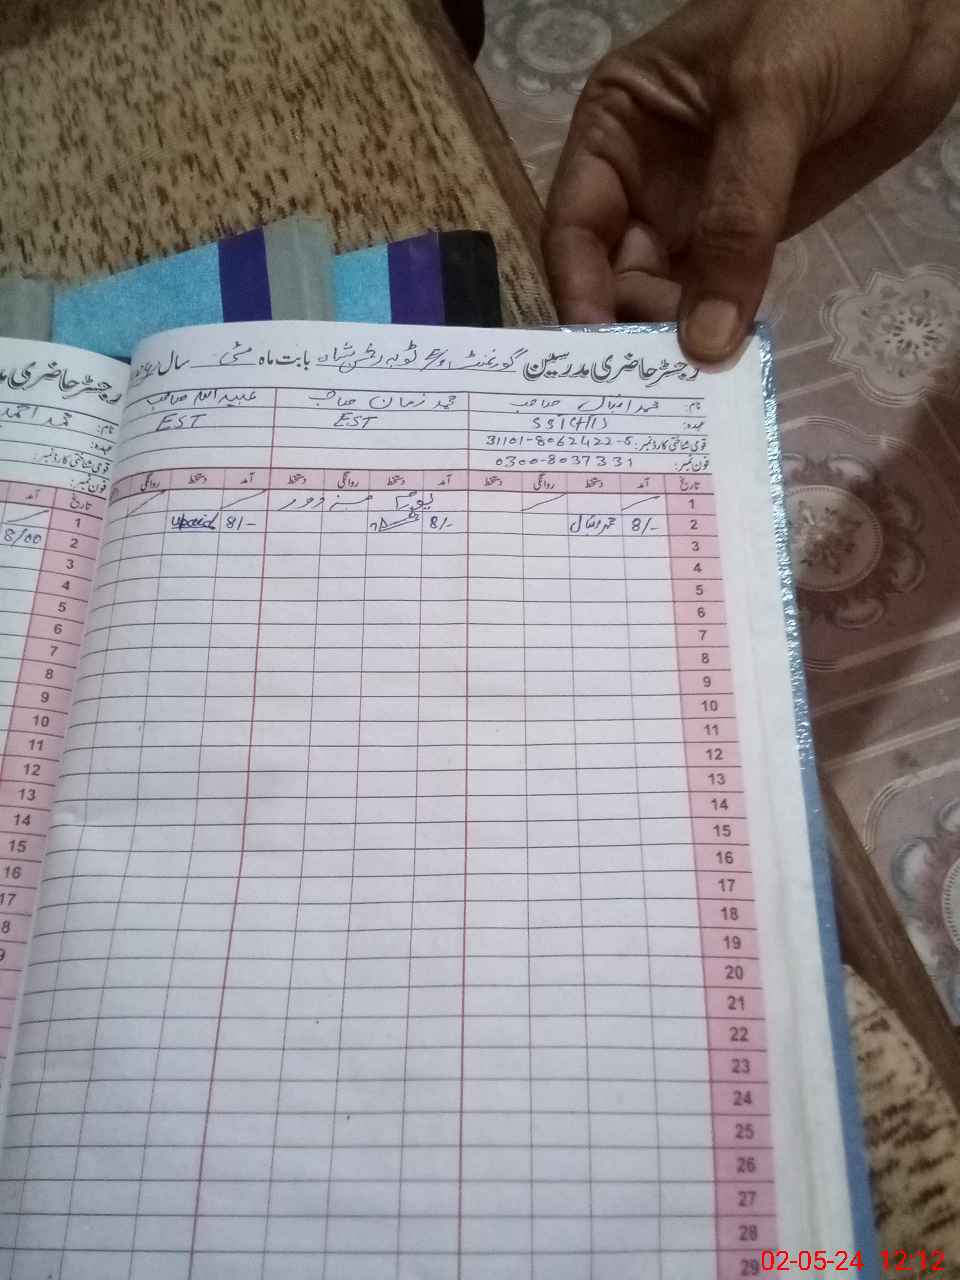 رجسٹر حاضری مدرسین گورنمنٹ بابت ماہ مئی سال
نام: محمد اقبال صاحب محمد زمان صاحب عبید اللہ صاحب
عہدہ: EST EST
قومی شناختی کارڈ نمبر: 31101-8062422-5
فون نمبر: 0300-8037331
تاریخ آمد دستخط روانگی دستخط آمد دستخط روانگی دستخط آمد دستخط روانگی
1 یوم مزدور
2 8/- محمد اقبال 8/- 8/-
3
4
5
6
7
8
9
10
11
12
13
14
15
16
17
18
19
20
21
22
23
24
25
26
27
28
29
رجسٹر حاضری
نام: محمد احمد
عہدہ:
قومی شناختی کارڈ نمبر:
فون نمبر:
تاریخ آمد
1
2 8/00
3
4
5
6
7
8
9
10
11
12
13
14
15
16
17
8
9
02-05-24 12:12